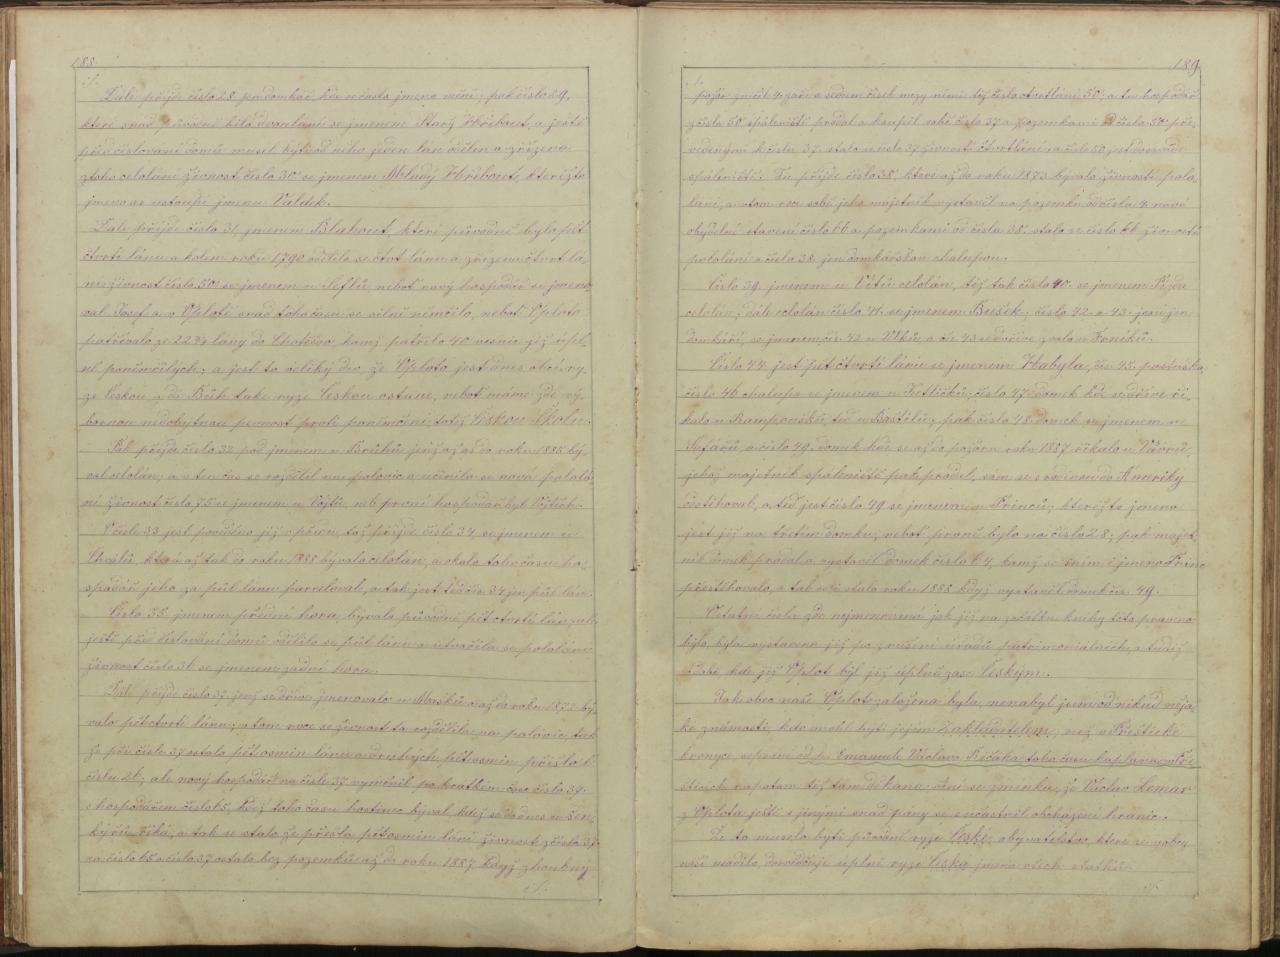 188
Dále přijde číslo 28 pa domkář, kde se často jmeno mění; pak číslo 29,
které snad původně bílo dvoulání se jmenem Starý Hřibout, a ještě
před číslováním domů musel být od něho jeden lán oddělen a zřízena
z toho celolání živnost číslo 30 se jmenem Mladý Hřibout, kterežto
jmeno se ustoupí jmenu Valdek.
Dále přijde číslo 31, jmenem Blahout, které původně bylo pět
čtvrtí lánu a kolem roku 1790 oddělilo se čtvrt lánu a zřízena čtvrt lá-
ní živnost číslo 50 se jmenem u Seflů, neboť nový hospodář se jmeno-
val Josef a v Oplotě snad toho času se silně němčilo, neboť Oploto
patřívalo ze 22 3/4 lány do Chotěšova, kamž patřilo 40 vesnic již úpl-
ně poněmčilých; a jest to veliký div, že Oploto jest dnes obcí ry-
ze českou, a dá Bůh také ryze Českou ostane, neboť máme zde vý-
bornou nedobytnou pevnost proti poněmčení, totiž Českou Školu.
Pak přijde číslo 32 pod jmenem u Bruhů jenž až do roku 1885 bý-
val celolán, a v ten čas se rozdělil na polovic a učinila se nová pololá-
ní živnost číslo 75 se jmenem u Vojtů, neb první hospodář byl Vojtěch.
O čísle 33 jest povídáno již v předu, tož přijde číslo 34, se jmenem u
Chválů, která až tak do roku 1888 bývala celolán; a okolo toho času ho-
spodář jeho za půl lánu parceloval, a tak jest teď čís. 34 jen půl lán.
Číslo 35 jmenem přední hora, bývala původně pět čtvrtí lán, ale
ještě před číslováním domů oddělilo se půl lánu a utvořila se pololání
živnost číslo 36 se jmenem zadní hora.
Dále přijde číslo 37, jenž se dříve jmenovalo u Marků a až do roku 1872 bý-
valo pět čtvrtí lánu; a tom roce se živnost ta rozdělila na polovic, tak
že při čísle 37 ostalo pět osmin lánu a druhých pět osmin přišlo k
číslu 21; ale nový hospodář na čísle 37 vyměnil po krátkém čase číslo 37
s hospodářem číslo 15, kdež toho času hostinec býval, kdež se dodnes u Šen-
kýřů říká, a tak se stalo že přešla pětosmin lání živnost z čísla 37
na číslo 15 a číslo 37 ostalo bez pozemků až do roku 1887, když zhoubný
189
požár zničil 4. září a sedum čísel mezi nimi též číslo čtvrtlání 50; a tu hospodář
z čísla 50 spáleniště prodal a koupil sobě číslo 37 a pozemkami od čísla 50 při-
vedenými k číslu 37. stalo se číslo 37 živností čtvrtlání a číslo 50 jest dosavade
spáleniště. Tu přijde číslo 38 které až do roku 1873 bývalo živností polo-
lání, a v tom roce sobě jeho majetník vystavil na pozemku od čísla 4 nové
obydelné stavení číslo 66 a pozemkami od čísla 38 stalo se číslo 66 živností
pololání a číslo 38 jen domkářskou chalupou.
Číslo 39 jmenem u Vítů celolán, též tak číslo 40 se jmenem Pázdr
celolán; dále celolán číslo 41 se jmenem Bušek; číslo 42 a 43 jsou jen
domkáři, se jmenem čís. 42 u Vlků, a čís. 43 se dříve zvalo u Fencků.
Číslo 44 jest pět čtvrtí lánu se jmenem Habyla, čís. 45 pastouška
číslo 46 chalupa se jmenem u Kotličků; číslo 47 domek kde se dříve ří-
kalo u Rampouchů, teď u Bastílů; pak číslo 48 domek se jmenem u
Šafářů a číslo 49 domek kde se až do požáru roku 1887 říkalo u Vávrů,
jehož majetník spáleniště pak prodal, sám se s rodinou do Ameriky
odstěhoval, a teď jest číslo 49 se jmenem u Princů, kterežto jmeno
jest již na třetím domku, neboť první bylo na čísle 28; pak majet-
ník domek prodal a vystavil domek číslo 64, kamž se s ním i jmeno Princ
přestěhovalo, a tak se i stalo roku 1888 když vystavěl domek čís. 49.
Ostatní čísla zde nejmenovaná jak již na začátku knihy této praveno
bylo, byla vystavena již po zrušení úřadů patrimoniálních, a tudíž
v době kde již Oplot byl již úplně zase Českým.
Jak obec naše Oploto založena byla, nenabyl jsem od nikud něja-
ké známosti, kdo mohl býti jejím Zakladatelem, než v Přeštické
kronyce sepsané od p. Emanuele Václava Faičáka toho času kaplana v Pře-
šticích na potom též tam děkana, činí se zmínka, že Václav Lomar
z Oplota ještě s jinými snad pány se súčastnil obcházení hranic.
Že to musela býti původní ryze Česká obyvatelstvo, které se v obci
naší usadilo, dosvědčuje úplně ryze Česká jmena všech statků.